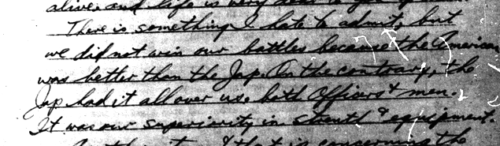 alive and life is very dear
There is something I hate to admit, but
we did not win our battles because the American
was better than the Jap. On the contrary, the
Jap had it all over us. both Officers & men.
It was our superiority in strenth & equipment.
& that is concerning the